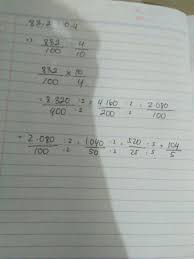 83,2 : 0,4
=) 832/100 : 4/10
832/100 × 10/4
= 8.320/400 :2/:2 = 4.160/200 :2/:2 = 2.080/100
= 2.080/100 :2/:2 = 1040/50 :2/:2 = 520/25 :5/:5 = 104/5